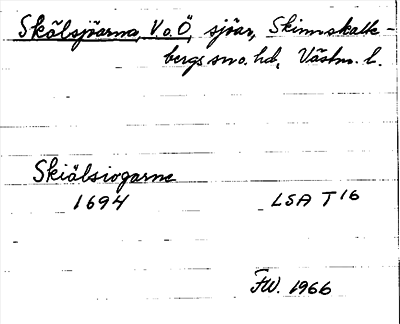 Skälsjöarna, V. o. Ö., sjöar, Skinnskatte-
bergs sn o. hd, Västm. l.
Skiälsiogarne
1694 LSA T16
FW. 1966